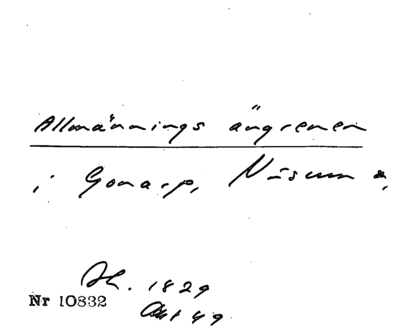 Allmännings ängrenen
i Gonarp, Näsum s,
Sk. 1829
Nr 10832
Akt 49